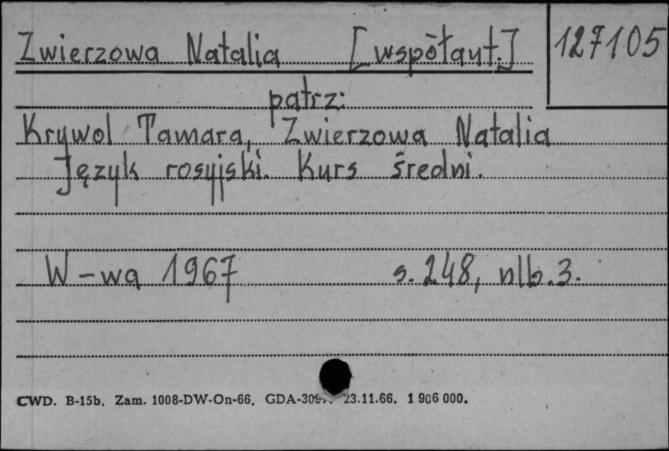 Zwierzowa Natalia [współaut.] 127105
patrz:
Krywol Tamara, Zwierzowa Natalia
Język rosyjski. Kurs średni.
W-wa 1967 s. 248, nlb. 3.
CWD. B-15b. Zam. 1008-DW-On-66. 23.11.66. 1 906 000.